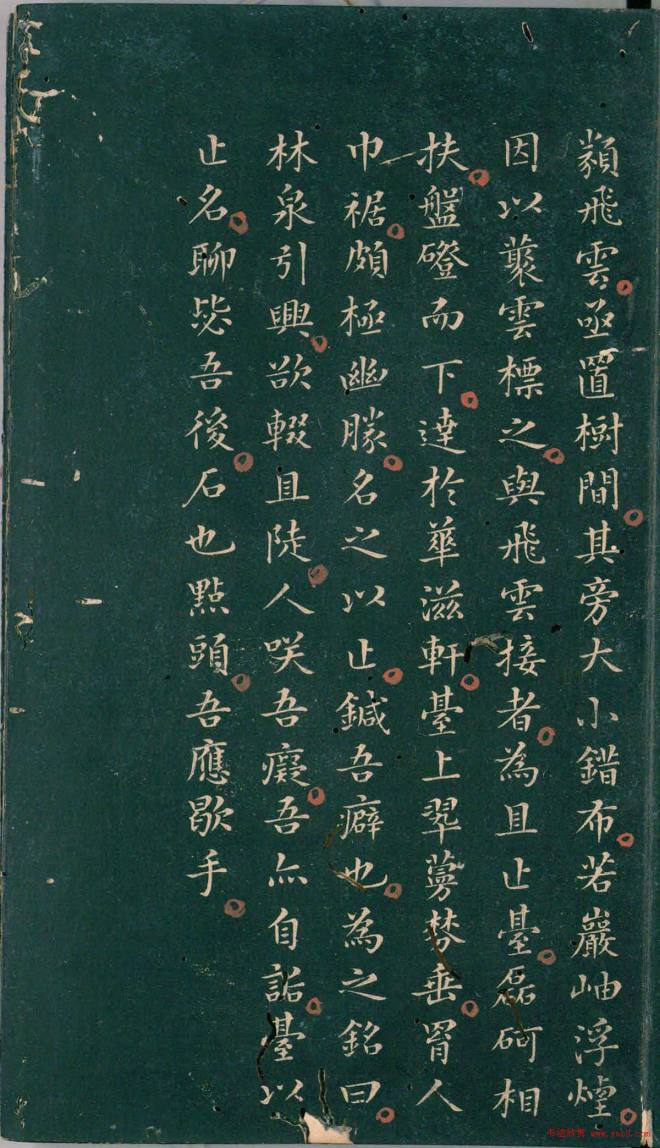 類飛雲亟置樹間其旁大小錯布若巖岫浮煙
因以雲標之與飛雲接者為且止臺磊砢相
扶盤磴而下達於華滋軒臺上翠蔓棼垂罥人
巾裾頗極幽勝名之以止鍼吾癖也為之銘曰
林泉引興欲輟且陡人咲吾癡吾亦自詬臺以
止名聊毖吾後石也點頭吾應歇手
书法欣赏 www.yac8.com